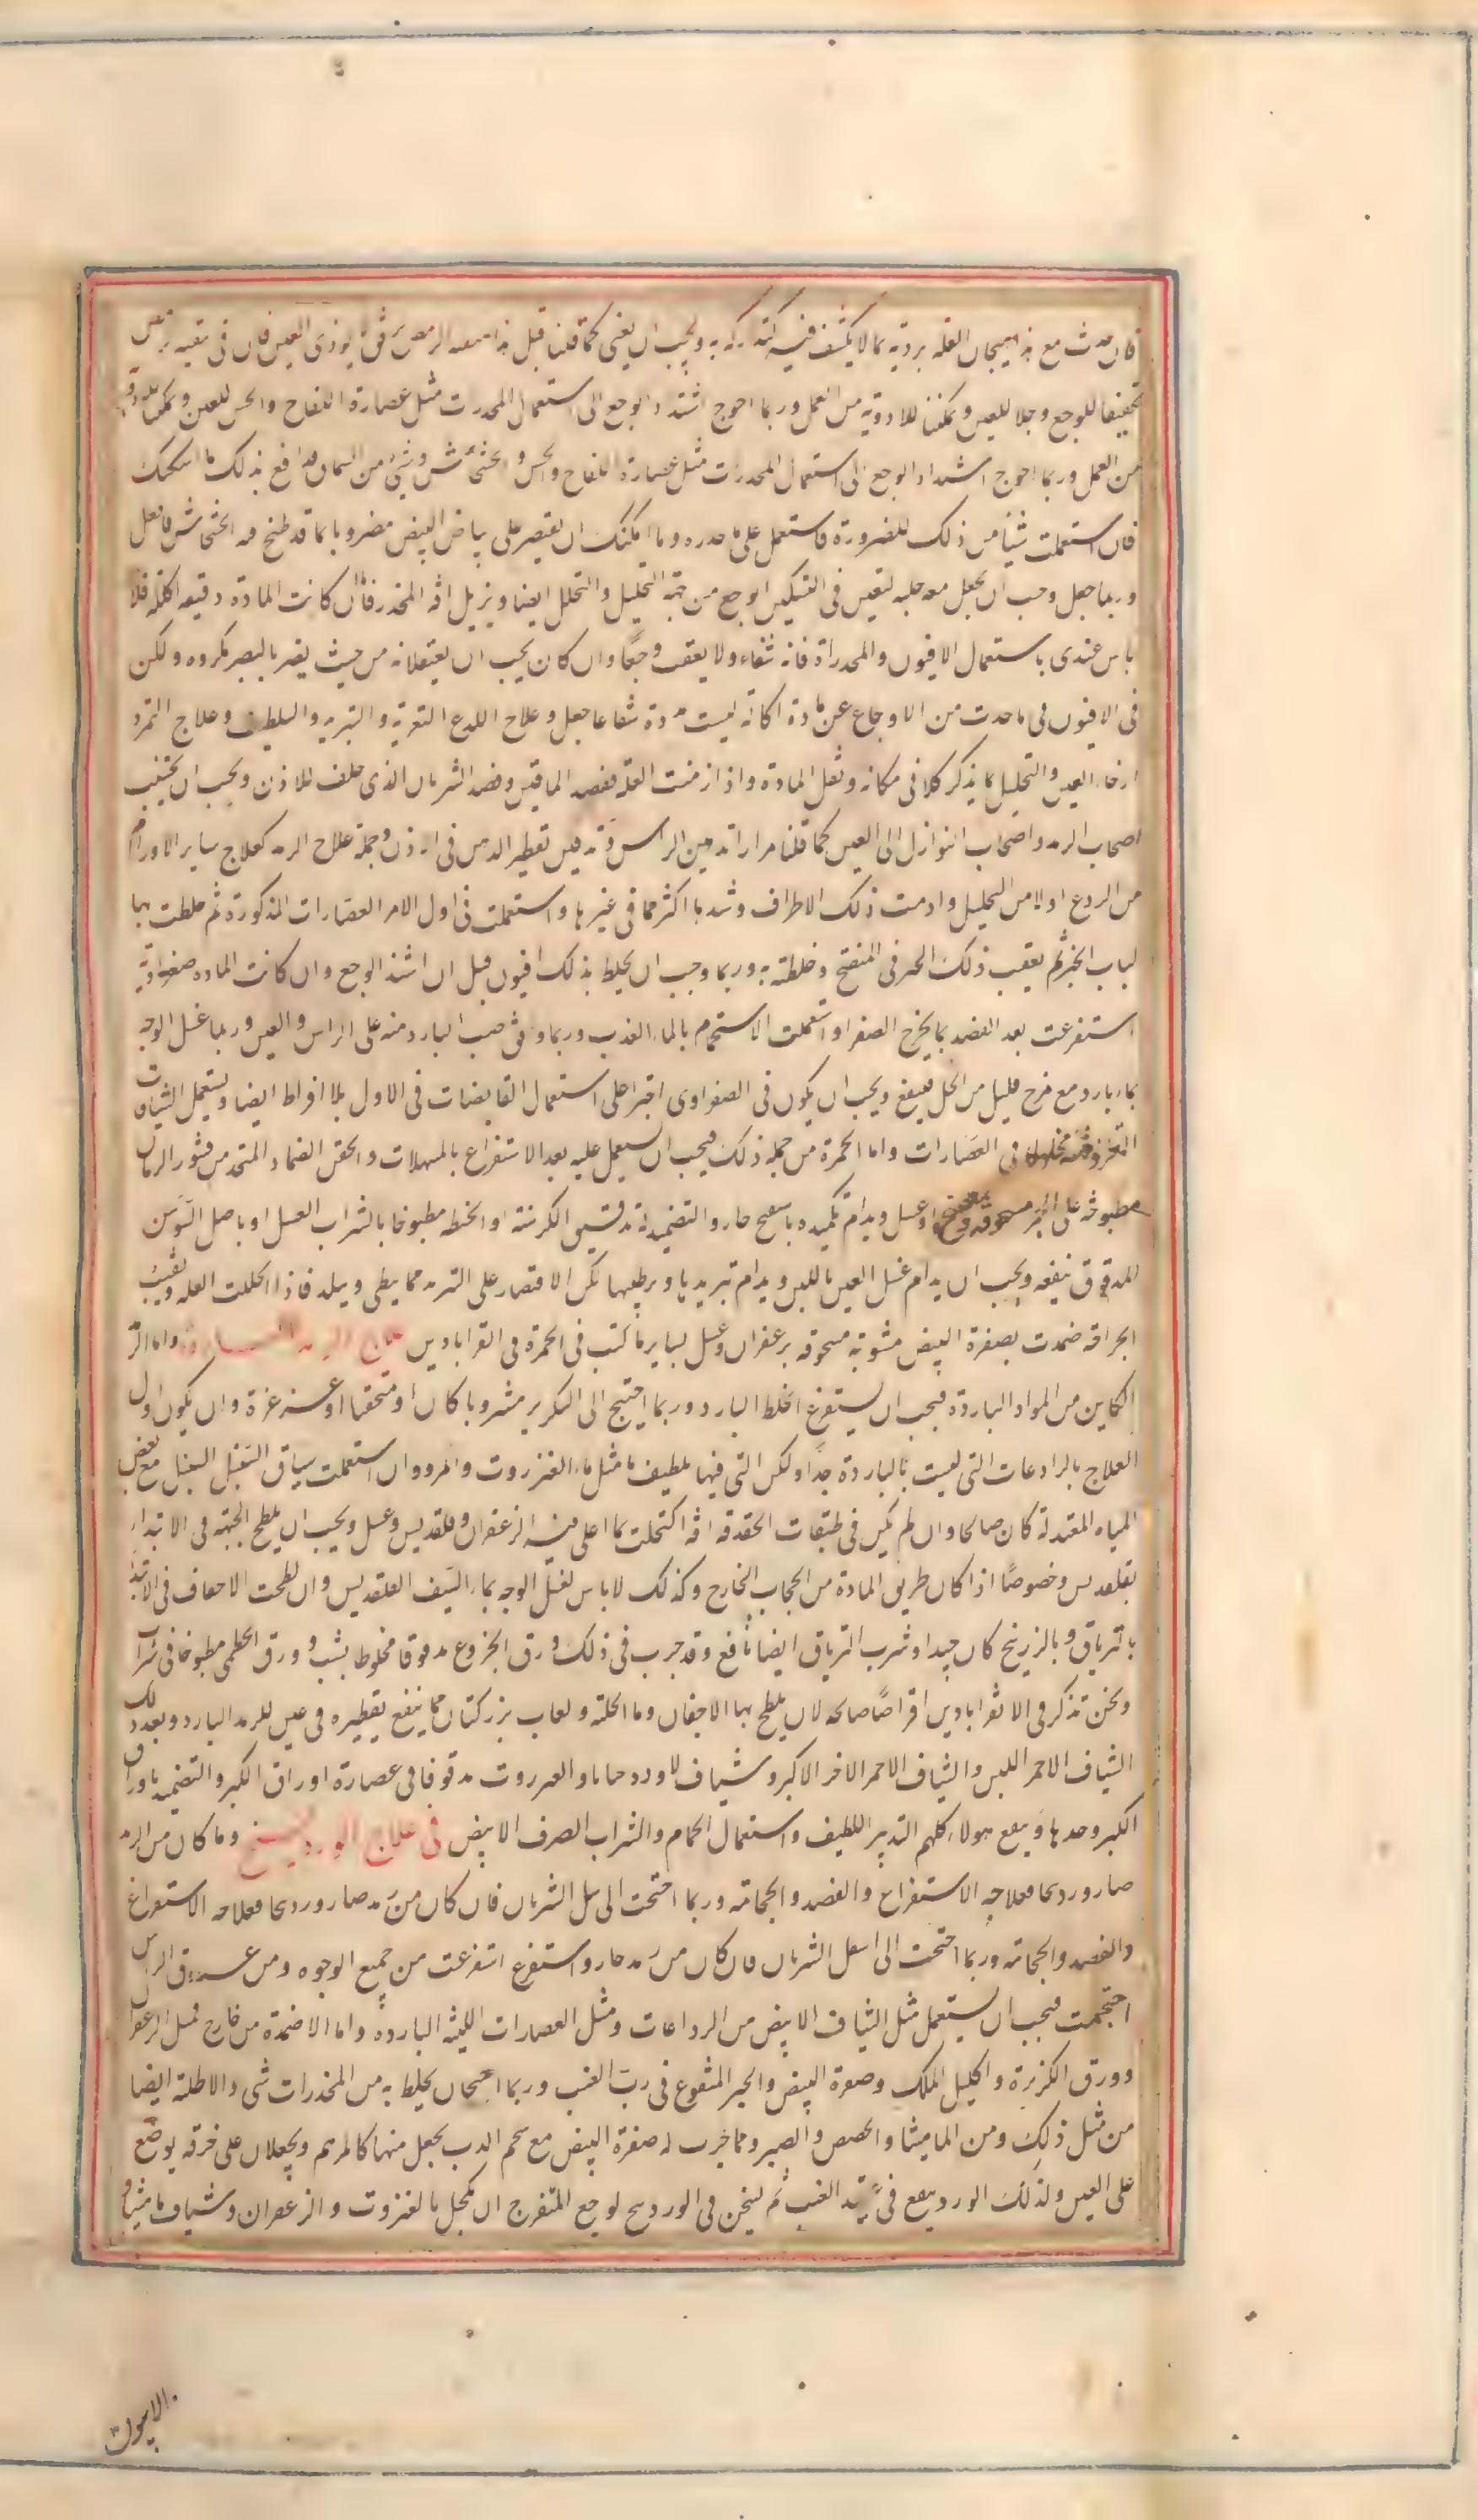 فان حدث مع هيجان العلة برديه مما لا يكشف فيه كثه تركه به ويجب ان يعنى كما قلنا قبل هذا بتنقيه الرمص برفق يوذى العين فان فى تنقيه
تخفيفا للوجع وجلا للعين وتمكنا للادوية من العمل وربما احوج اشتداد الوجع الى استعمال المخدرات مثل عصارة اللفاح والخس للعين وتمكنا للادويه
من العمل وربما احوج اشتداد الوجع الى استعمال المخدرات مثل عصارة اللفاح والخس والخشخاش وشئ من السماق فدافع بذلك ما امكنك
فان استعملت شيئا من ذلك للضرورة فاستعمل على حذره وما امكنك ان تقتصر على بياض البيض مضروبا بما قد طبخ فيه الخشخاش فافعل
وربما جعل وجب ان يجعل معه حلبه لتعين فى التسكين الوجع من جهة التحليل والتحلل ايضا ويزيل افه المخدر فان كانت المادة دقيقه اكالة فلا
باس عندى باستعمال الافيون والمخدراة فانه شفاء ولا يعقب وجعا وان كان يجب ان يعتقلانه من حيث يضر بالبصر مكروه ولكن
فى الافيون فى ما حدث من الاوجاع عن مادة اكالة ليست ممددة شفا عاجل وعلاج اللدع التغرية والتبريد والتلطيف وعلاج التمرد
ارخاء العين والتحليل بما يذكر كلا فى مكانه ونقل المادة واذا ازمنت العلة ففصد الماقين وفصد الشريان الذى خلف للاذن ويجب ان يجتنب
اصحاب الرمد واصحاب النوازل الى العين كما قلنا مرارا تدهين الراس وتدهين تقطير الدهن فى الاذن وجملة علاج الرمد كعلاج ساير الاورام
من الردع اولا من التحليل وادمت ذلك الاطراف وشدها اكثر مما فى غيرها واستعملت فى اول الامر العصارات المذكورة ثم خلطت بها
لباب الخبز ثم يعقب ذلك الخمر فى المنقح وخلطته به وربما وجب ان يخلط بذلك افيون قبل ان اشتد الوجع وان كانت الماده صفراوية
استفرغت بعد الفصد بما يخرج الصفرا واستعملت الاستحمام بالماء العذب وربما وفق صب البارد منه على الراس والعين وربما غسل الوجه
بماء بارد مع مزج قليل من الخل فينفع ويجب ان يكون فى الصفراوى اجترا على استعمال القابضات فى الاول بلا افراط ايضا ويستعمل الشيافات
المتخذه منه مخلوطه فى العصارات واما الحمرة من جملة ذلك فيجب ان يستعمل عليه بعد الاستفراغ بالمسهلات والحقن الضماد المتخذ من قشور الرمان
مطبوخة على الجمر مسحوقه بميفختج او عسل ويدام تكميده باسفنج حار والتضميد بدقيق الكرسنة او الحنطه مطبوخا بالشراب العسل او باصل السوسن
المدقوق ينفعه ويجب ان يدام غسل العين باللبن ويدام تبريدها وترطيبها لكن الاقتصار على التبريد مما يبطى ويبلد فاذا انحللت العله وبقيت
الحراقه ضمدت بصفرة البيض مشوية مسحوقه بزعفران وعسل لساير ما كتب فى الحمرة فى القرابادين علاج الرمد البارد واما الر
الكاين من المواد الباردة فيجب ان يستفرغ الخلط البارد وربما احتيج الى التكرير مشروبا كان او محتقنا او غرغرة وان يكون اول
العلاج بالرادعات التى ليست بالباردة جدا ولكن التى فيها تلطيف ما مثل ماء العنزروت والمر وان استعملت سياف السنبل مع بعض
المياه المعتدلة كان صالحا وان لم يكن فى طبقات الحدقة افه اكتحلت بما اغلى فيه الزعفران وقلقديس وعسل ويجب ان يلطخ الجبهه فى الابتداء
بقلقديس وخصوصا اذا كان طريق المادة من الحجاب الخارج وكذلك لا باس لغسل الوجه بماء اذيف القلقديس وان لطخت الاجفان فى الابتدا
بالترياق وبالزرنيخ كان جيدا وشرب الترياق ايضا نافع وقد جرب فى ذلك ورق الخروع مدقوقا مخلوطا بشب وورق الخطمى مطبوخا فى شراب
ونحن نذكر فى الاقرابادين اقراصا صالحه لان يلطخ بها الاجفان وما الحلبة ولعاب بزر كتان مما ينفع بقطيره فى عين للرمد البارد وبعد ذلك
الشياف الاحمر اللين والشياف الاحمر الاخر الاكبر وشياف مدقوقا فى عصارة اوراق الكبر والتضميد باوراق
الكبر وحدها وينفع هولاء كلهم التدبير اللطيف واستعمال الحمام والشراب الصرف الابيض فى علاج الوردينج وما كان من الرمد
صار وردنجا فعلاجه الاستفراغ والفصد والحجامه وربما احتجت الى سل الشريان فان كان من رمد صار وردينجا فعلاجه الاستفراغ
والفصد والحجامه وربما احتجت الى اسل الشريان فان كان من رمد حار واستفرغ استفرغت من جميع الوجوه ومن عروق الراس
احتجمت فيجب ان يستعمل مثل الشياف الابيض من الرداعات ومثل العصارات اللينه البارده واما الاضمدة من خارج فمثل الزعفران
وورق الكزبرة واكليل الملك وصفرة البيض والخبز المنقوع فى رب العنب وربما احتيج ان يخلط به من المخدرات شى والاطلة ايضا
من مثل ذلك ومن الماميثا والحضض والصبر ومما جرب له صفرة البيض مع شحم الدب يجعل منها كالمرهم ويجعلان على خرقه يوضع
على العين ولذلك الورد ينقع فى العنب ثم ليخن فى الوردينج لوجع المتفرج ان يكحل بالعنزروت والزعفران وشياف ماميثا و
الافيون